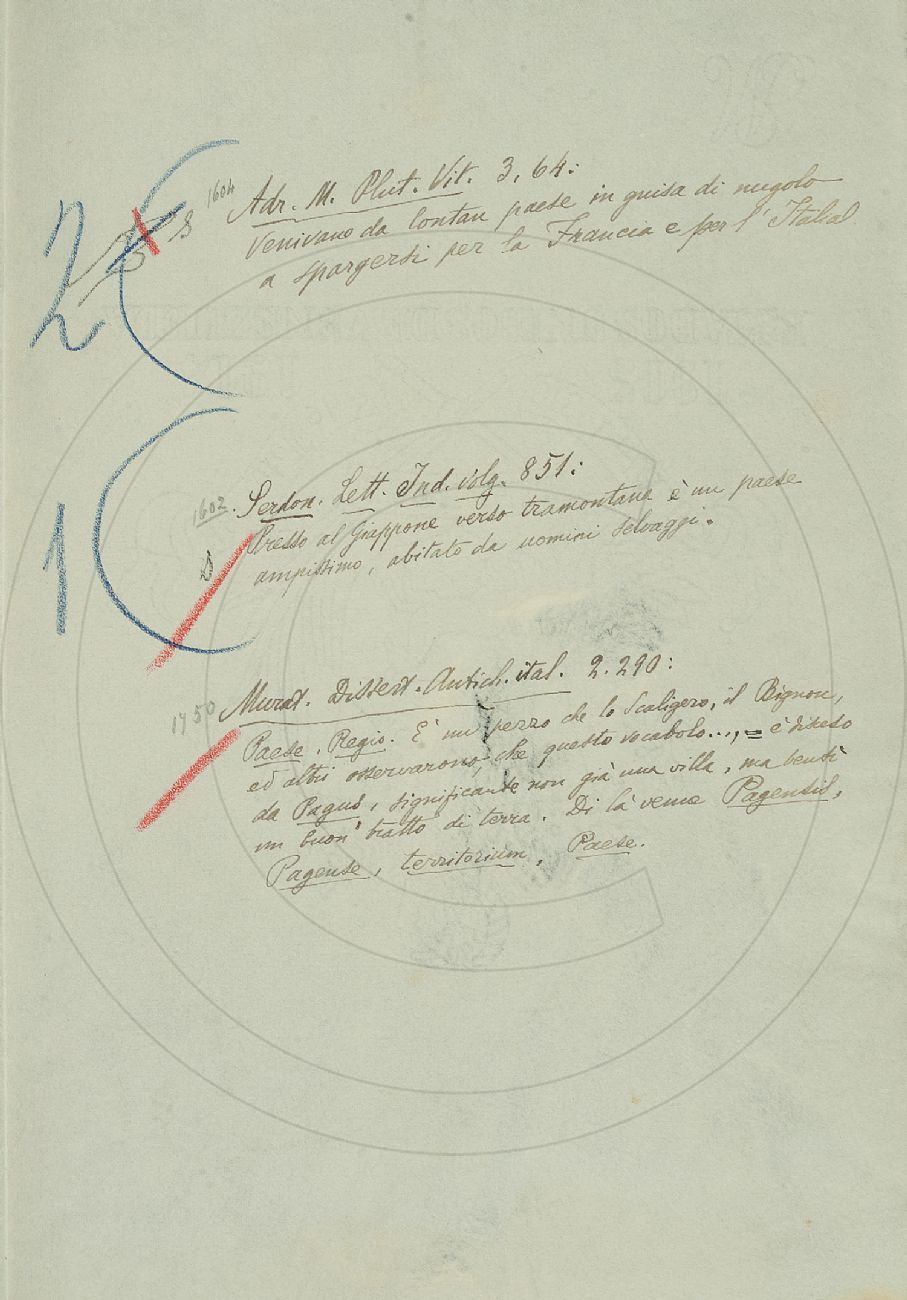 1604
Adr. M. Plut. Vit. 3, 64:
Venivano da lontan paese in guisa di nugolo
a spargersi per la Francia e per l'Italia
2
1602. Serdon. Lett. Ind. volg. 851:
Presso al Giappone verso tramontana è un paese
ampissimo, abitato da uomini selvaggi.
1
1750 Murat. Dissert. Antich. ital. 2. 290:
Paese, Regio. È un pezzo che lo Scaligero, il Bignon,
ed altri osservarono, che questo vocabolo..., = è disceso
da Pagus, significante non già una villa, ma bensì
un buon tratto di terra. Di là venne Pagensis,
Pagense, territorium, Paese.